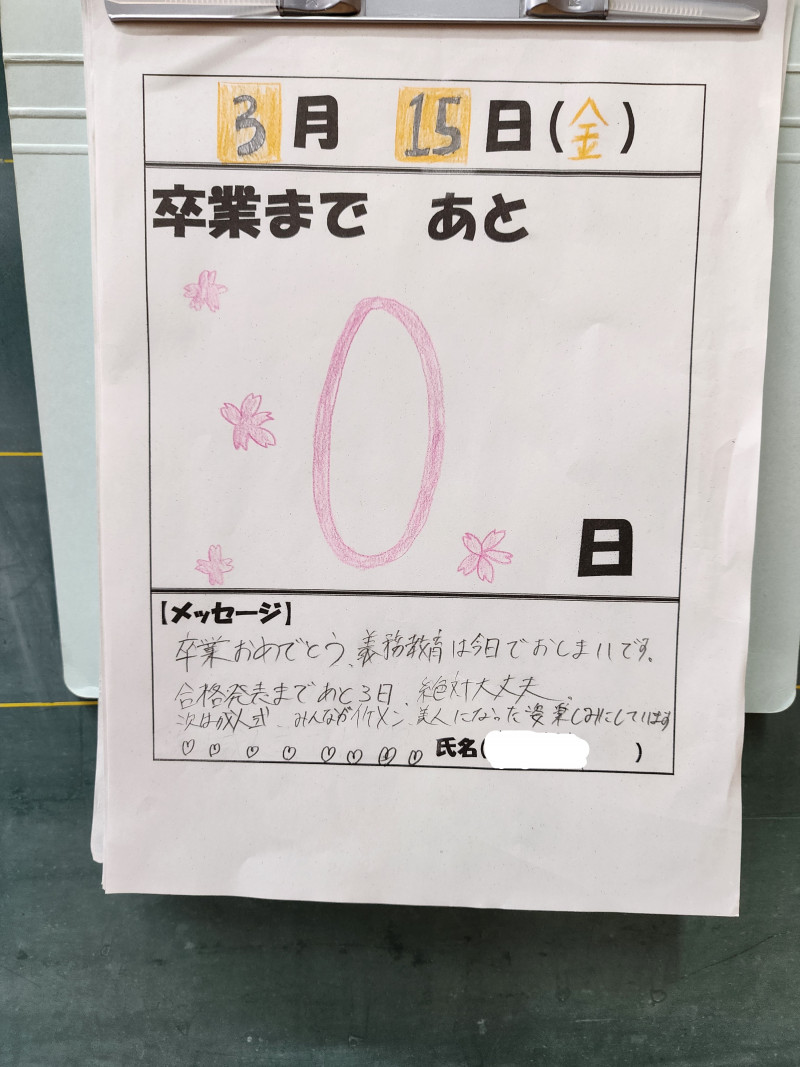 3月 15日(金)
卒業まで あと
0
日
【メッセージ】
卒業おめでとう、義務教育は今日でおしまいです。
合格発表まであと3日、絶対大丈夫。
次は成人式、みんながイケメン、美人になった姿楽しみにしています
氏名( )